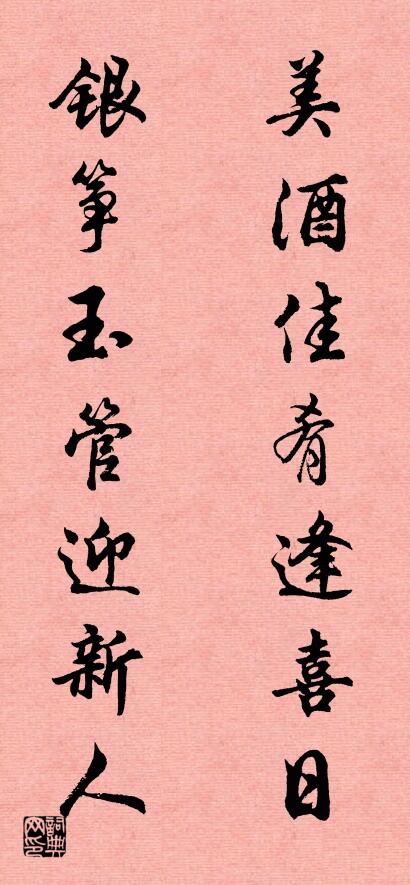 美酒佳肴逢喜日
银筝玉管迎新人
詞典网印